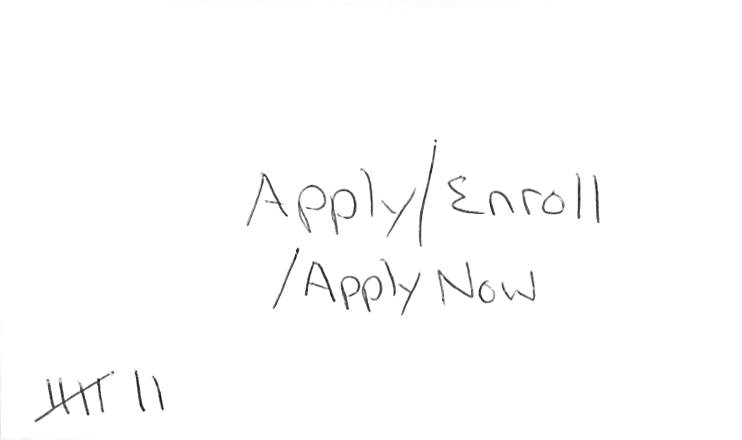 Apply/Enroll
/Apply Now